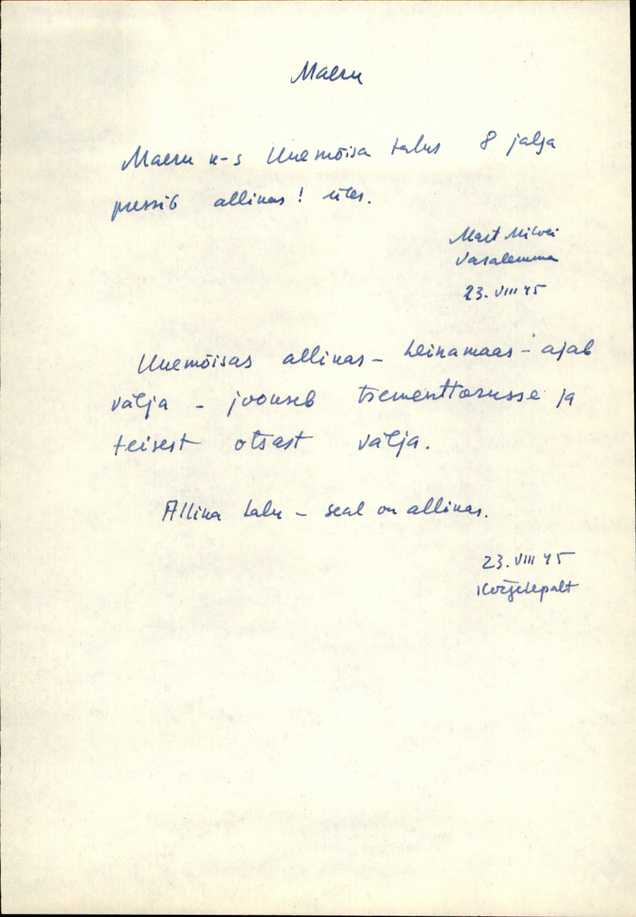 Maeru
Maeru k-s Unemõisa talus 8 jalga
pressib allikas! üles.
Mart
Vasalemma
23. VIII 45
Unemõisas allikas - heinamaas - ajab
välja - jookseb tsementtorusse ja
teisest otsast välja.
Allika talu - seal on allikas.
23. VIII 45